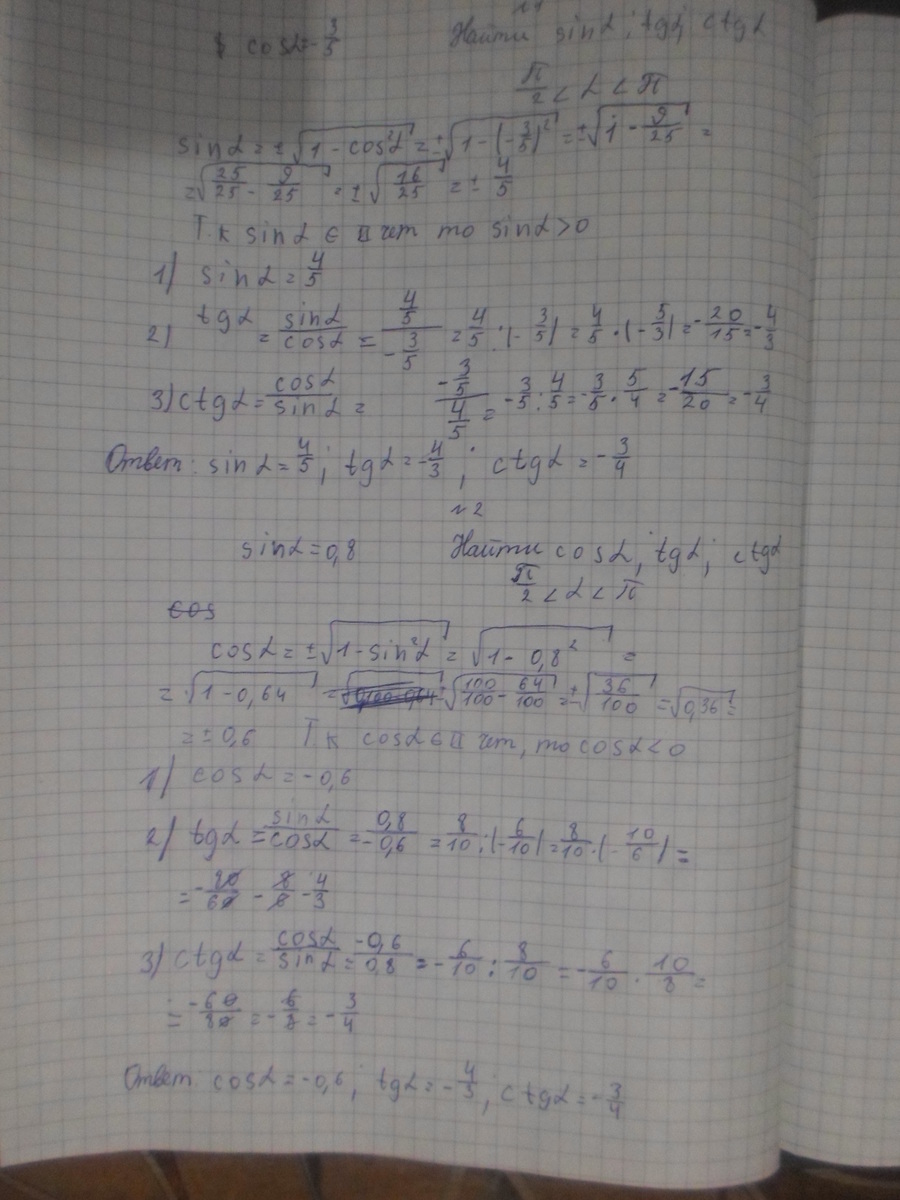 №1
cosα=-3/5 Найти sinα; tgα; ctgα
π/2 < α < π
sinα = ±√(1 - cos²α) = ±√(1 - (-3/5)²) = ±√(1 - 9/25) =
= √(25/25 - 9/25) = ± √(16/25) = ± 4/5
Т.к sinα ∈ II чет то sinα > 0
1) sinα = 4/5
2) tgα = sinα/cosα = (4/5)/(-3/5) = 4/5 : (-3/5) = 4/5 · (-5/3) = -20/15 = -4/3
3) ctgα = cosα/sinα = (-3/5)/(4/5) = -3/5 : 4/5 = -3/5 · 5/4 = -15/20 = -3/4
Ответ: sinα = 4/5; tgα = -4/3; ctgα = -3/4
№2
sinα = 0,8 Найти cosα; tgα; ctgα
π/2 < α < π
cos
cosα = ±√(1 - sin²α) = √(1 - 0,8²) =
= √(1 - 0,64) = ±√(100/100 - 64/100) = ±√(36/100) = √(0,36) =
= ±0,6 Т.к cosα ∈ II чет, то cosα < 0
1) cosα = -0,6
2) tgα = sinα/cosα = 0,8/-0,6 = 8/10 : (-6/10) = 8/10 · (-10/6) =
= -80/60 - 8/6 - 4/3
3) ctgα = cosα/sinα = -0,6/0,8 = -6/10 : 8/10 = -6/10 · 10/8 =
= -60/80 = -6/8 = -3/4
Ответ: cosα = -0,6; tgα = -4/3; ctgα = -3/4